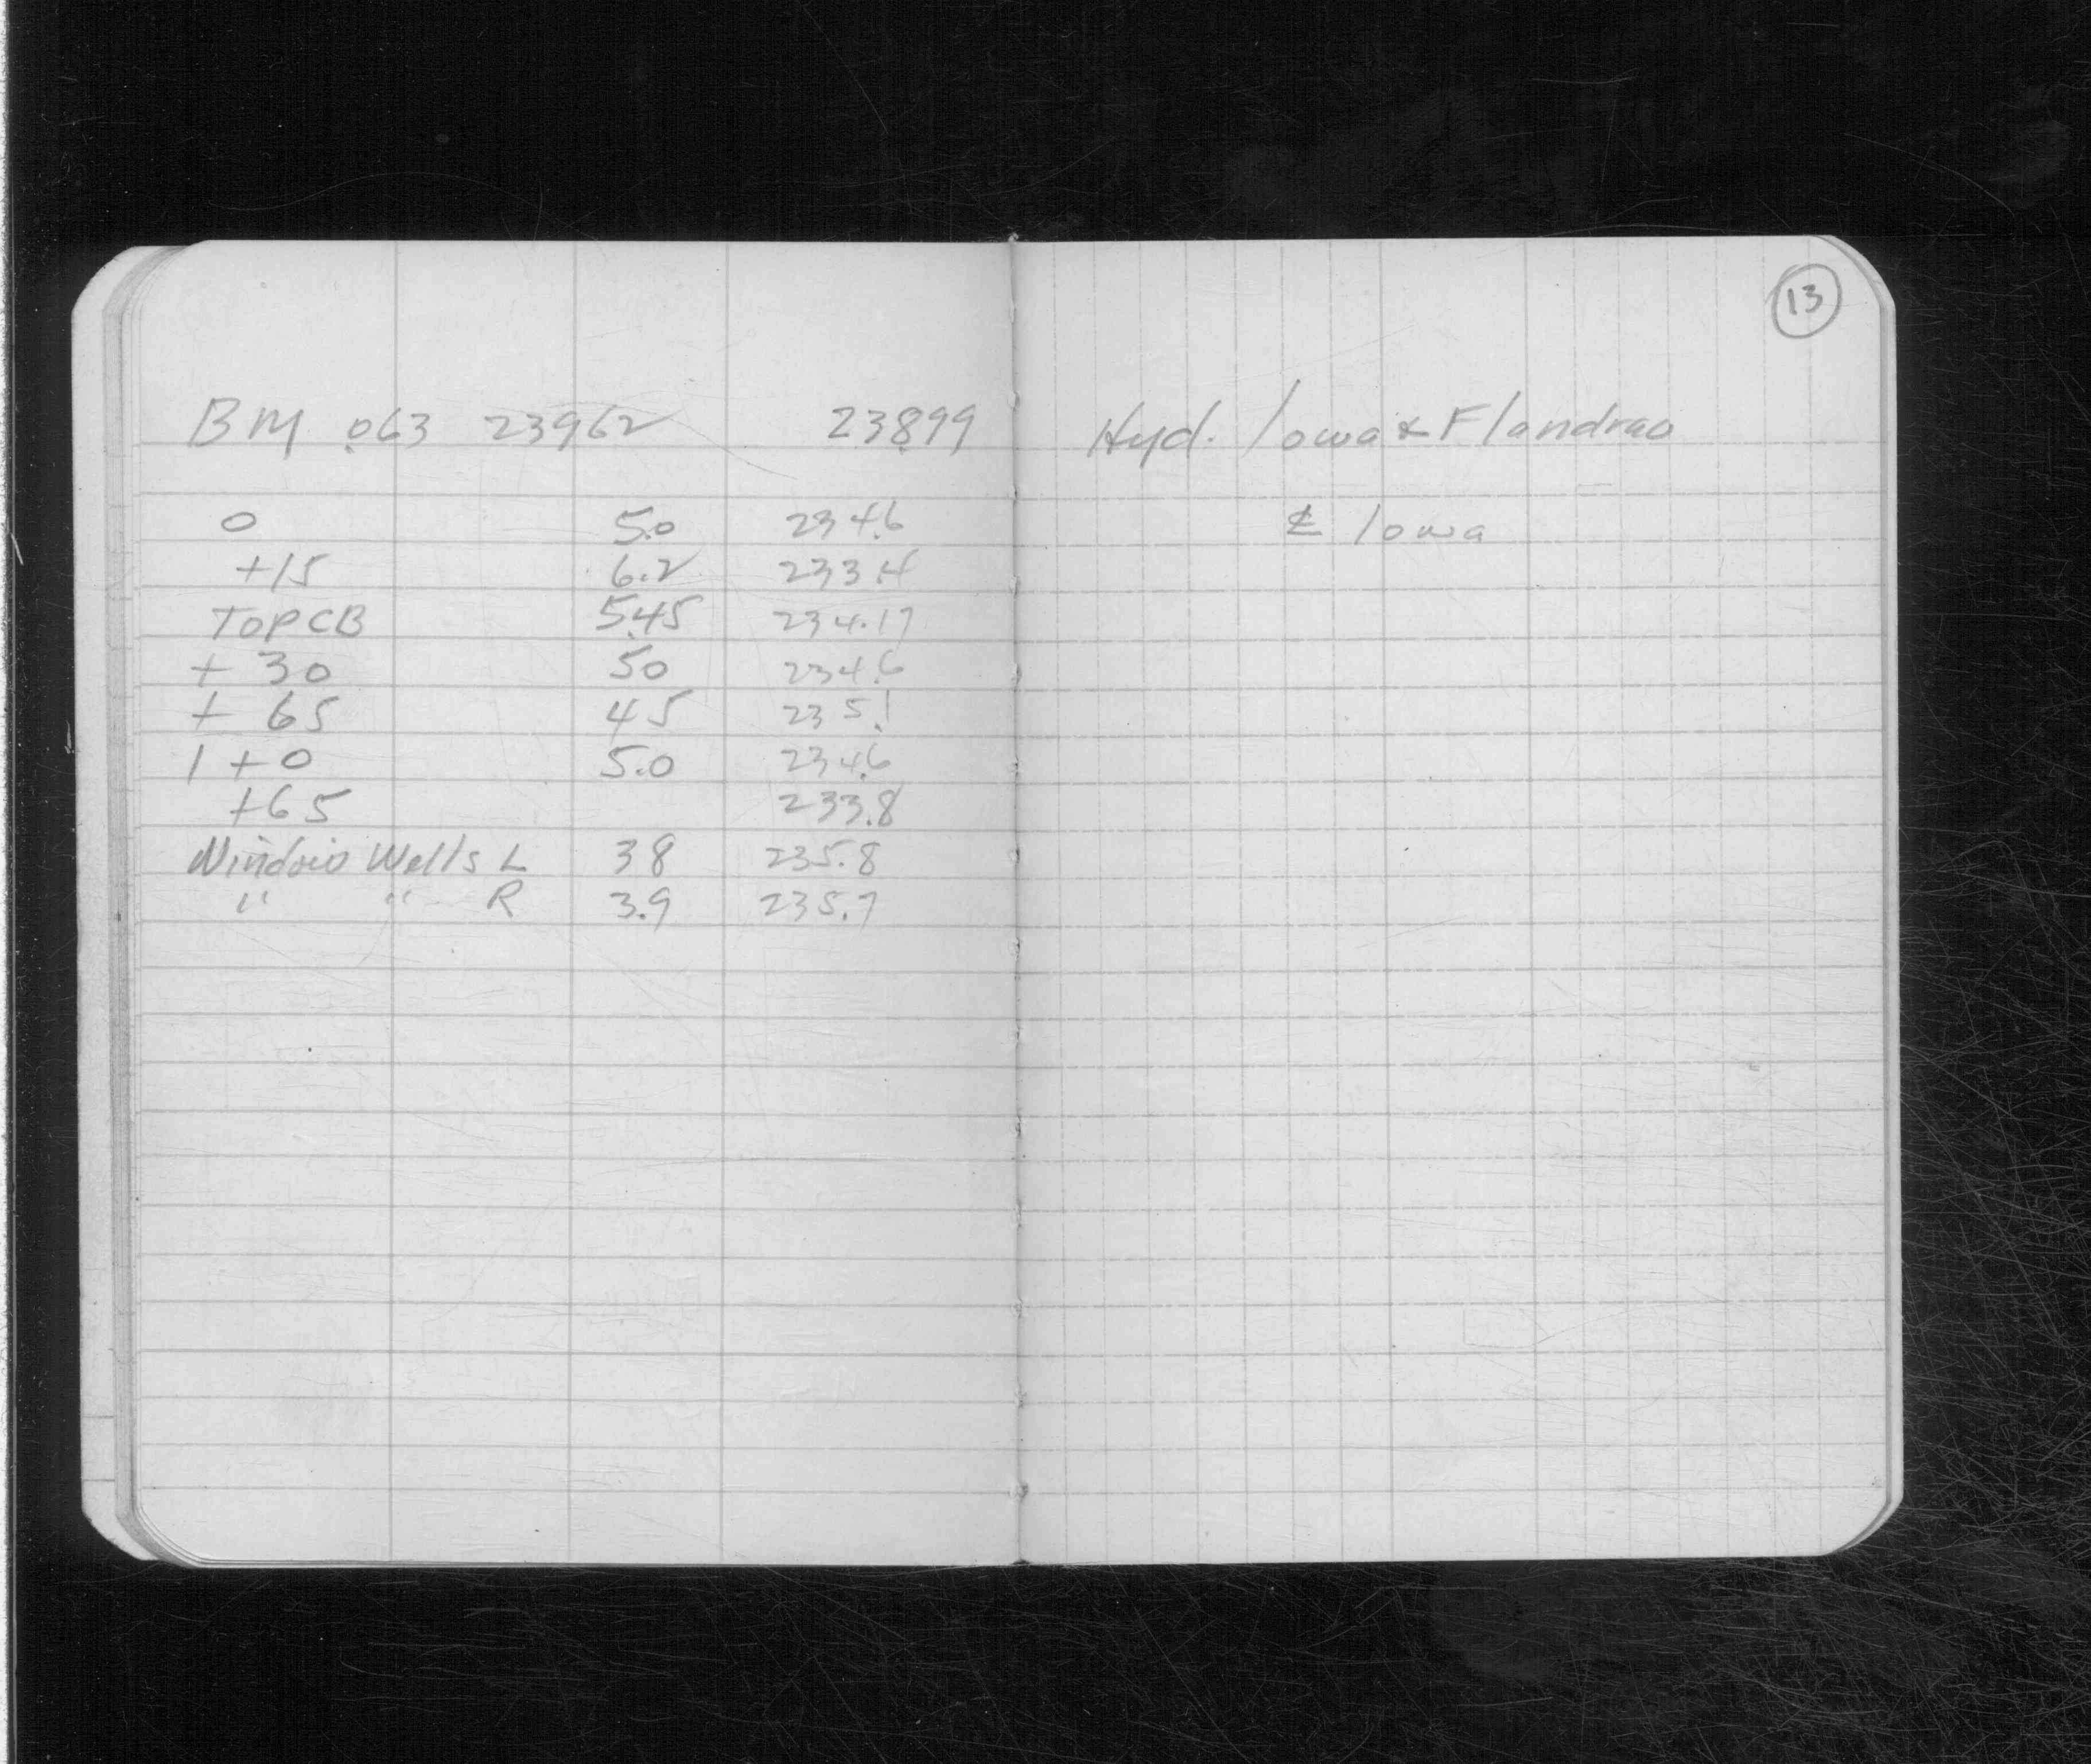 13
BM .063 23962 238.99 Hyd. Iowa & Flandrau
0 5.0 234.6 ℄ Iowa
+15 6.2 233.4
TOP CB 5.45 234.17
+ 30 50 234.6
+ 65 45 235.1
1 + 0 5.0 234.6
+65 233.8
Window Wells L 38 235.8
" " R 3.9 235.7